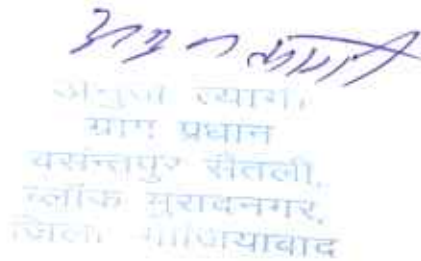 अनुज त्यागी
अनुज त्यागी
ग्राम प्रधान
वसन्तपुर सैंतली,
ब्लॉक मुरादनगर,
जिला गाजियाबाद